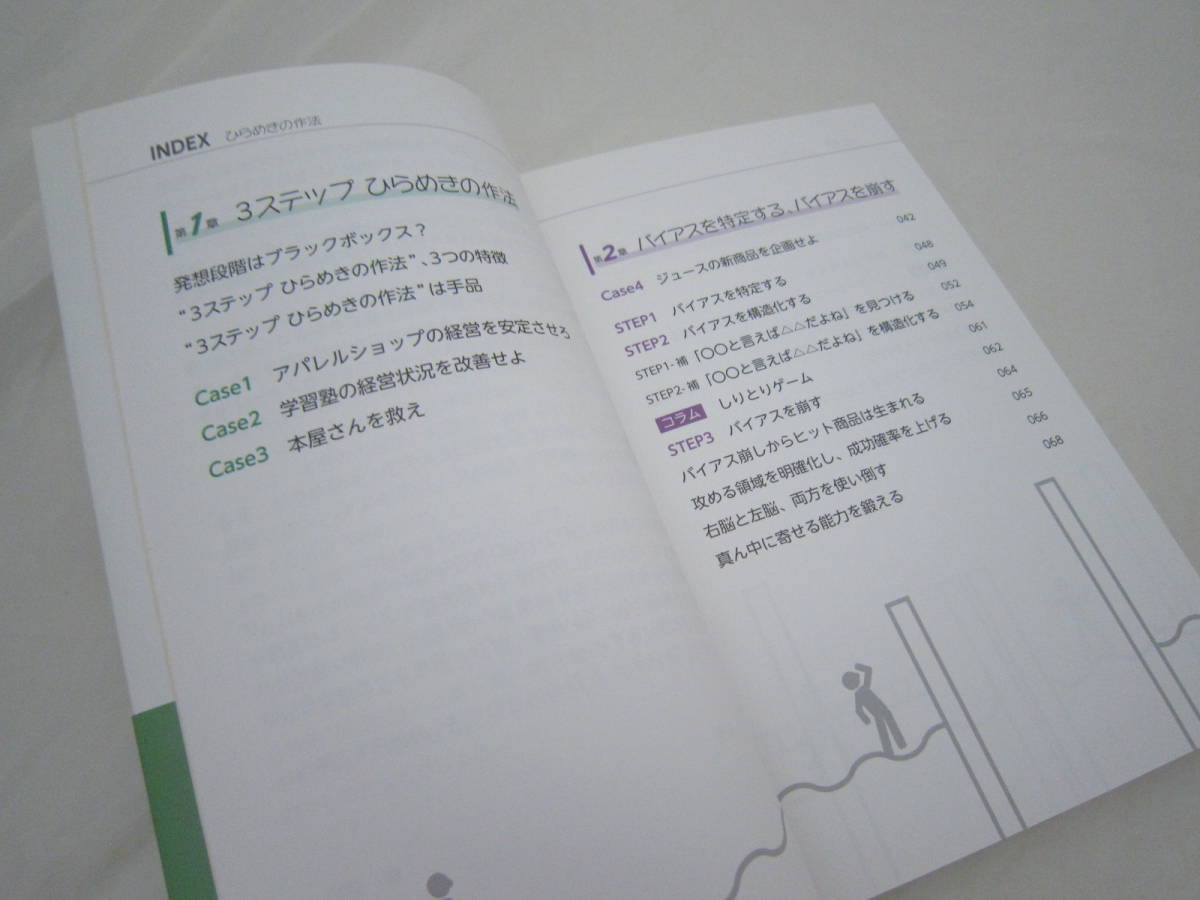 INDEX ひらめきの作法
第1章 3ステップ ひらめきの作法
発想段階はブラックボックス？
“3ステップ ひらめきの作法”、3つの特徴
“3ステップ ひらめきの作法”は手品
Case1 アパレルショップの経営を安定させろ
Case2 学習塾の経営状況を改善せよ
Case3 本屋さんを救え
第2章 バイアスを特定する、バイアスを崩す
Case4 ジュースの新商品を企画せよ 042
STEP1 バイアスを特定する 048
STEP2 バイアスを構造化する 049
STEP1-補 「〇〇と言えば△△だよね」を見つける 052
STEP2-補 「〇〇と言えば△△だよね」を構造化する 054
コラム しりとりゲーム 061
STEP3 バイアスを崩す 062
バイアス崩しからヒット商品は生まれる 064
攻める領域を明確化し、成功確率を上げる 065
右脳と左脳、両方を使い倒す 066
真ん中に寄せる能力を鍛える 068